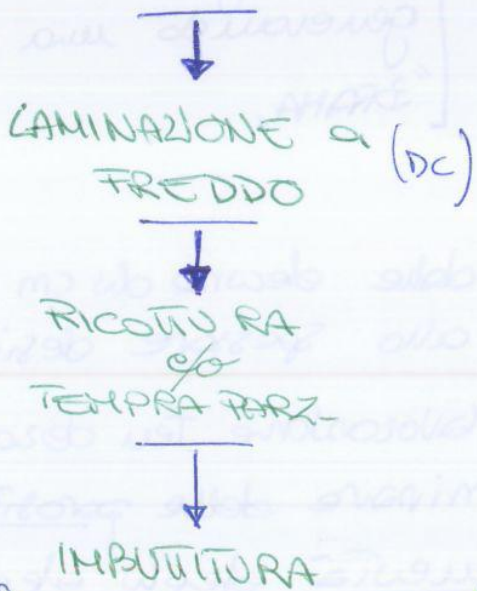 LAMINAZIONE a (DC)
FREDDO
RICOTTURA
e/o
TEMPRA PARZ.
IMBUTITURA